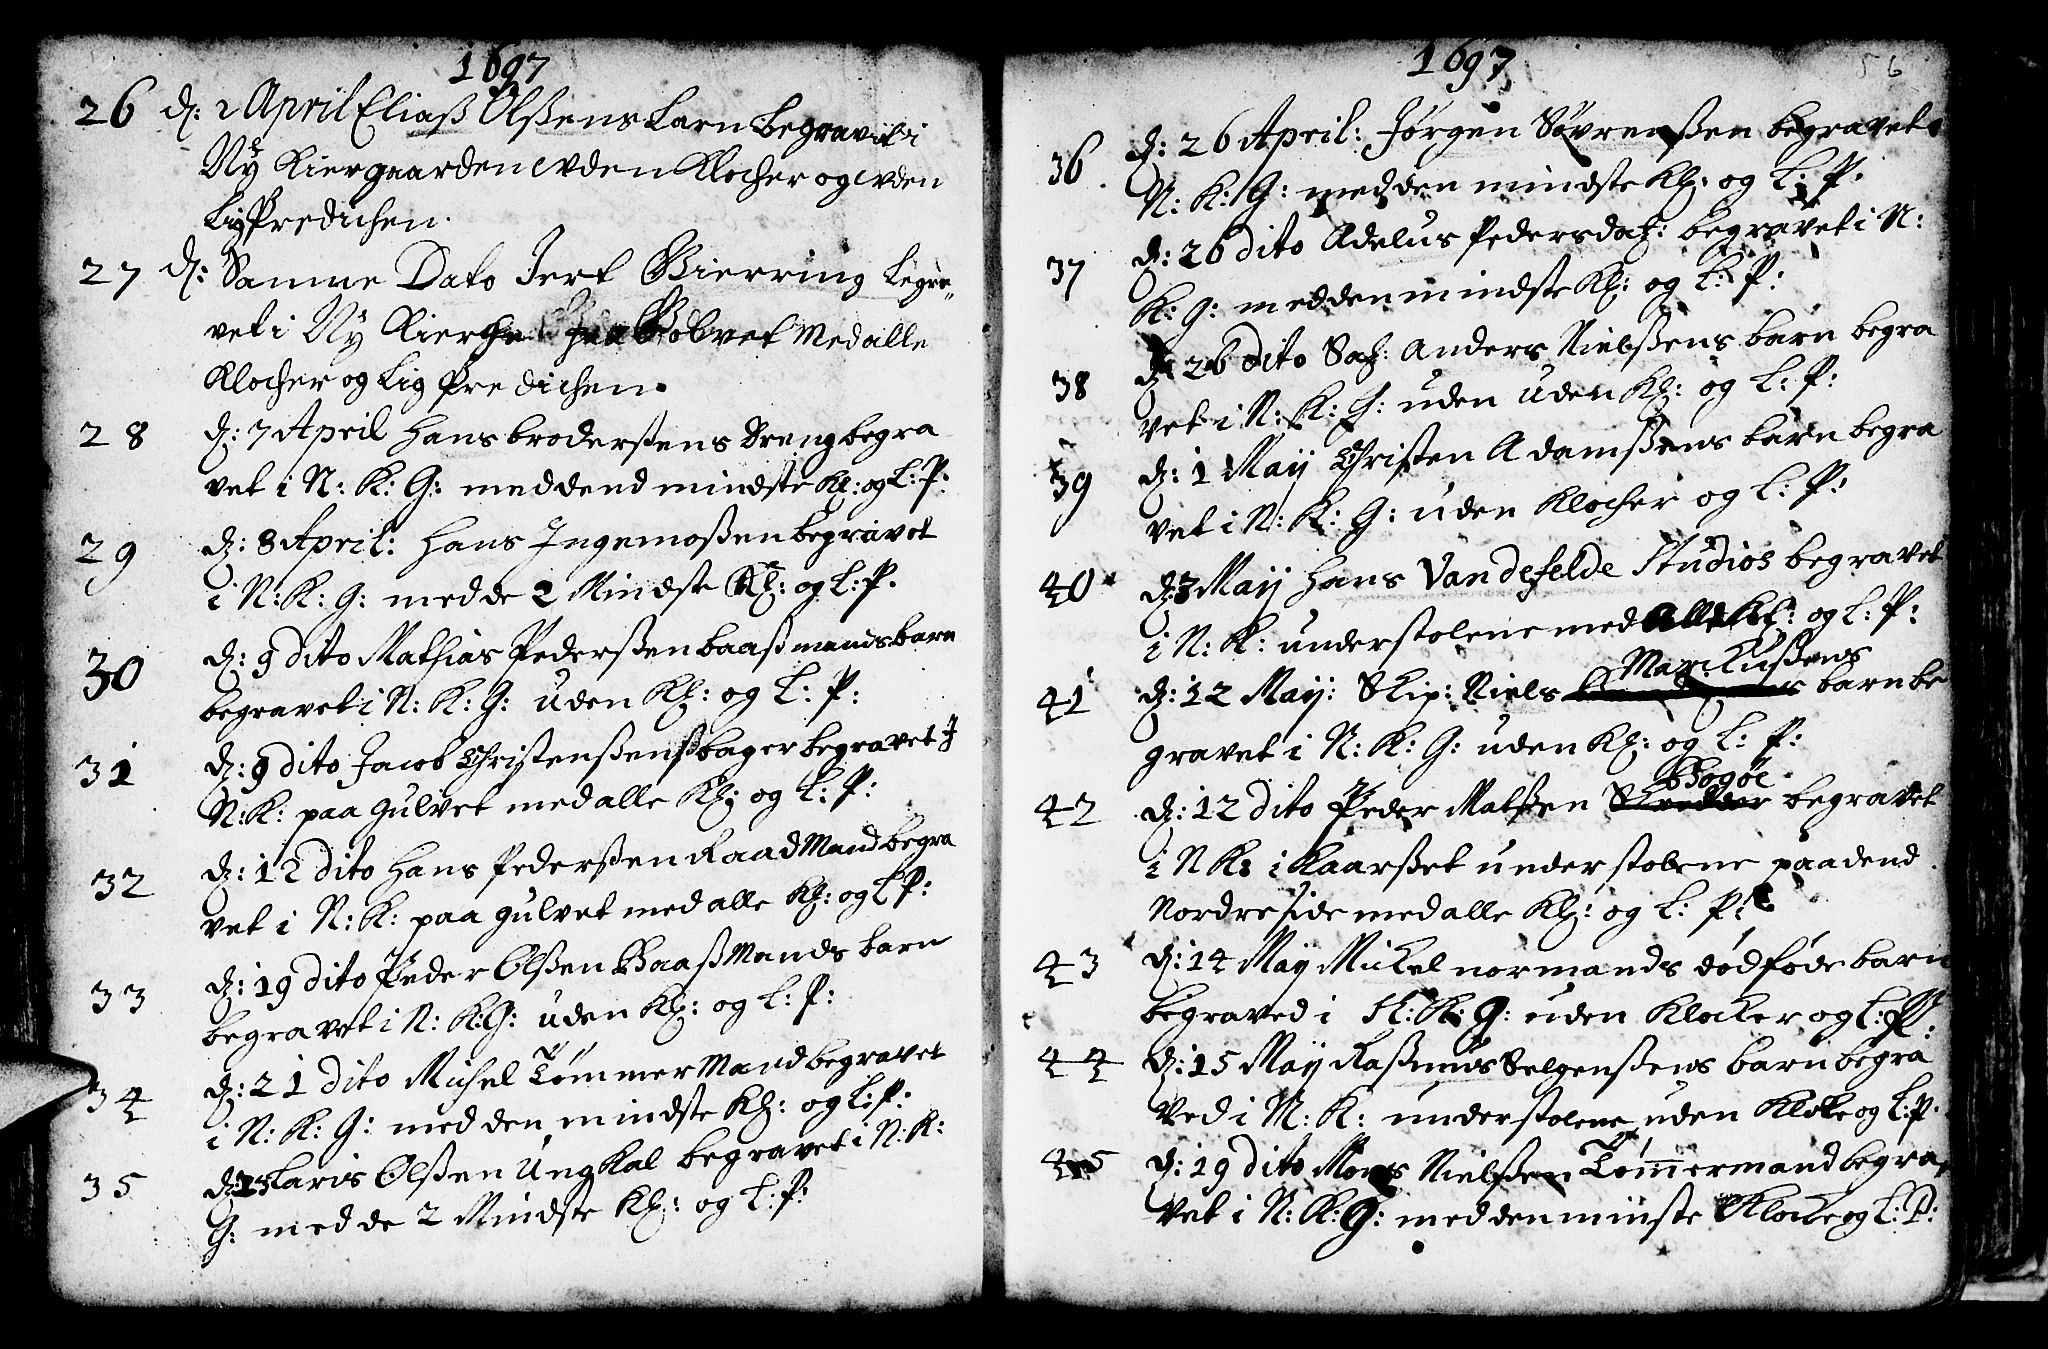 1697
26 d: 2 April Eliaß Olßens barn begravet i
Ny Kiergaarden uden Klocher og uden
LigPredichen.
27 d: Samme Dato Jert Bierring begra„
vet i Ny Kierche paa Golvet Med alle
Klocher og Lig Predichen.
28 d: 7 April Hans broderßens Dreng begra
vet i N: K: G: med dend mindste Kl: og L: P:
29 d: 8 April: Hans Ingemoßen begravet
i N: K: G: med de 2 Mindste Kl: og L: P.
30 d: 9 dito Mathias Pederßen baaßmands barn
begravet i N: K: G: uden Kl: og L: P:
31 d: 9 dito Jacob Christenßens bager begravet J
N: K: paa gulvet med alle Kl: og L: P:
32 d: 12 dito Hans Pederßen Raad Mand begra
vet i N: K: paa gulvet med alle Kl: og L P:
33 d: 19 dito Peder Olßen BaaßMands barn
begravet i N: K: G: uden Kl: og L: P:
34 d: 21 dito Michel Tømmer Mand begravet
i N: K: G: med den mindste Kl: og L: P:
35 d: Laris Olßen Ung Kal begravet i N: K:
G: med de 2 Mindste Kl: og L: P:
1697
56
36 d: 26 April: Jørgen Søvrenßen begravet
N: K: G: med den mindste Kl: og L: P.
37 d: 26 dito Adelus Pedersdat: begravet i N:
K: G: med den mindste Kl: og L: P:
38 d: 26 dito Sal: Anders Nielßens barn begra
vet i N: K: G: uden uden Kl: og L: P:
39 d: 1 Maij Christen Adamßens barn begra
vet i N: K: G: uden Klocher og L: P:
40 d: 3 Maij Hans Vandefelde Studios begravet
i N: K: under stolene med Alle Kl: og L: P:
Marckußens
41 d: 12 Maij: Skip: Niels barn be
gravet i N: K: G: uden Kl: og L: P:
Bogøe
42 d: 12 dito Peder Matßen Skredder begravet
i N K: i Kaarßet under stolene paa dend
Nordre side med alle Kl: og L: P:
43 d: 14 Maij Mickel normands død føde barn
begraved i N: K: G: uden Klocker og L: P:
44 d: 15 Maij Raßmus Selgenßens barn begra
ved i N: K: under stolene uden Klocke og L: P.
45 d: 19 dito Mons Nielßen Tømmermand begra„
vet i N: K: G: med den minste Klocke og L: P: